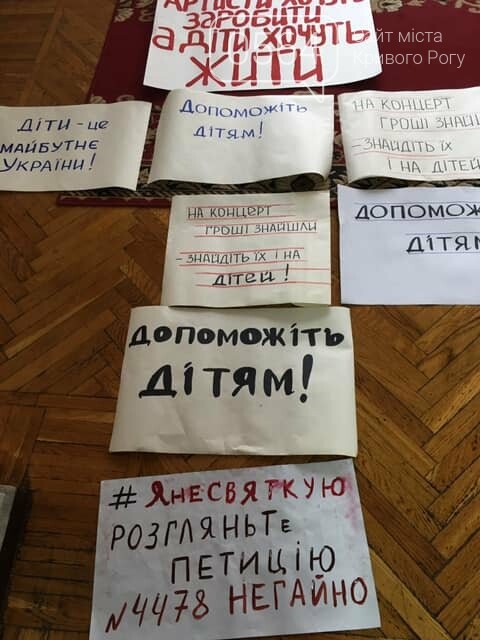 АРТИСТИ ХОЧУТЬ
ЗАРОБИТИ
А ДІТИ ХОЧУТЬ
ЖИТИ
Сайт міста
Кривого Рогу
ДІТИ - це
МАЙБУТНЄ
УКРАЇНИ!
ДОПОМОЖІТЬ
ДІТЯМ!
НА КОНЦЕРТ
ГРОШІ ЗНАЙШЛ
- ЗНАЙДІТЬ ЇХ
І НА ДІТЕЙ
НА КОНЦЕРТ
ГРОШІ ЗНАЙШЛИ
- ЗНАЙДІТЬ ЇХ І НА
ДІТЕЙ!
ДОПОМОЖ
ДІТЯМ
ДОПОМОЖІТЬ
ДІТЯМ!
# ЯНЕСВЯТКУЮ
РОЗГЛЯНЬТЕ
ПЕТИЦІЮ
№4478 НЕГАЙНО